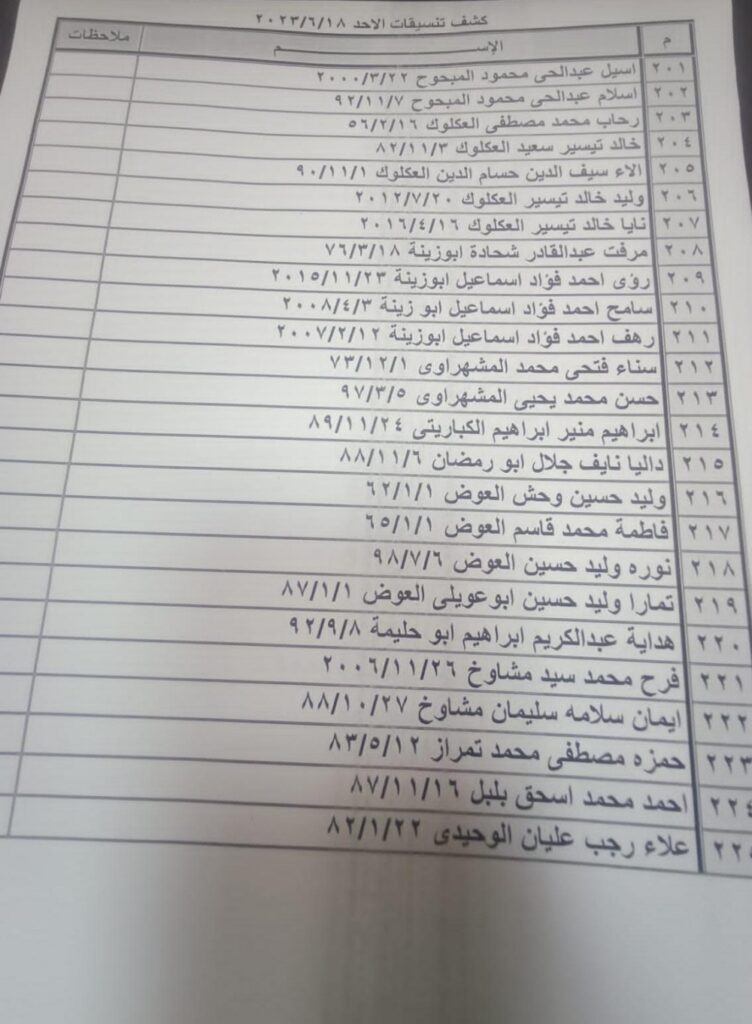 كشف تنسيقات الاحد ٢٠٢٣/٦/١٨
م الإســـــم ملاحظات
٢٠١ اسيل عبدالحى محمود المبحوح ٢٠٠٠/٣/٢٢
٢٠٢ اسلام عبدالحى محمود المبحوح ٩٢/١١/٧
٢٠٣ رحاب محمد مصطفى العكلوك ٥٦/٢/١٦
٢٠٤ خالد تيسير سعيد العكلوك ٨٢/١١/٣
٢٠٥ الاء سيف الدين حسام الدين العكلوك ٩٠/١١/١
٢٠٦ وليد خالد تيسير العكلوك ٢٠١٢/٧/٢٠
٢٠٧ نايا خالد تيسير العكلوك ٢٠١٦/٤/١٦
٢٠٨ مرفت عبدالقادر شحادة ابوزينة ٧٦/٣/١٨
٢٠٩ رؤى احمد فؤاد اسماعيل ابوزينة ٢٠١٥/١١/٢٣
٢١٠ سامح احمد فؤاد اسماعيل ابو زينة ٢٠٠٨/٤/٣
٢١١ رهف احمد فؤاد اسماعيل ابوزينة ٢٠٠٧/٢/١٢
٢١٢ سناء فتحى محمد المشهراوى ٧٣/١٢/١
٢١٣ حسن محمد يحيى المشهراوى ٩٧/٣/٥
٢١٤ ابراهيم منير ابراهيم الكباريتى ٨٩/١١/٢٤
٢١٥ داليا نايف جلال ابو رمضان ٨٨/١١/٦
٢١٦ وليد حسين وحش العوض ٦٢/١/١
٢١٧ فاطمة محمد قاسم العوض ٦٥/١/١
٢١٨ نوره وليد حسين العوض ٩٨/٧/٦
٢١٩ تمارا وليد حسين ابوعويلى العوض ٨٧/١/١
٢٢٠ هداية عبدالكريم ابراهيم ابو حليمة ٩٢/٩/٨
٢٢١ فرح محمد سيد مشاوخ ٢٠٠٦/١١/٢٦
٢٢٢ ايمان سلامه سليمان مشاوخ ٨٨/١٠/٢٧
٢٢٣ حمزه مصطفى محمد تمراز ٨٣/٥/١٢
٢٢٤ احمد محمد اسحق بلبل ٨٧/١١/١٦
٢٢٥ علاء رجب عليان الوحيدى ٨٢/١/٢٢